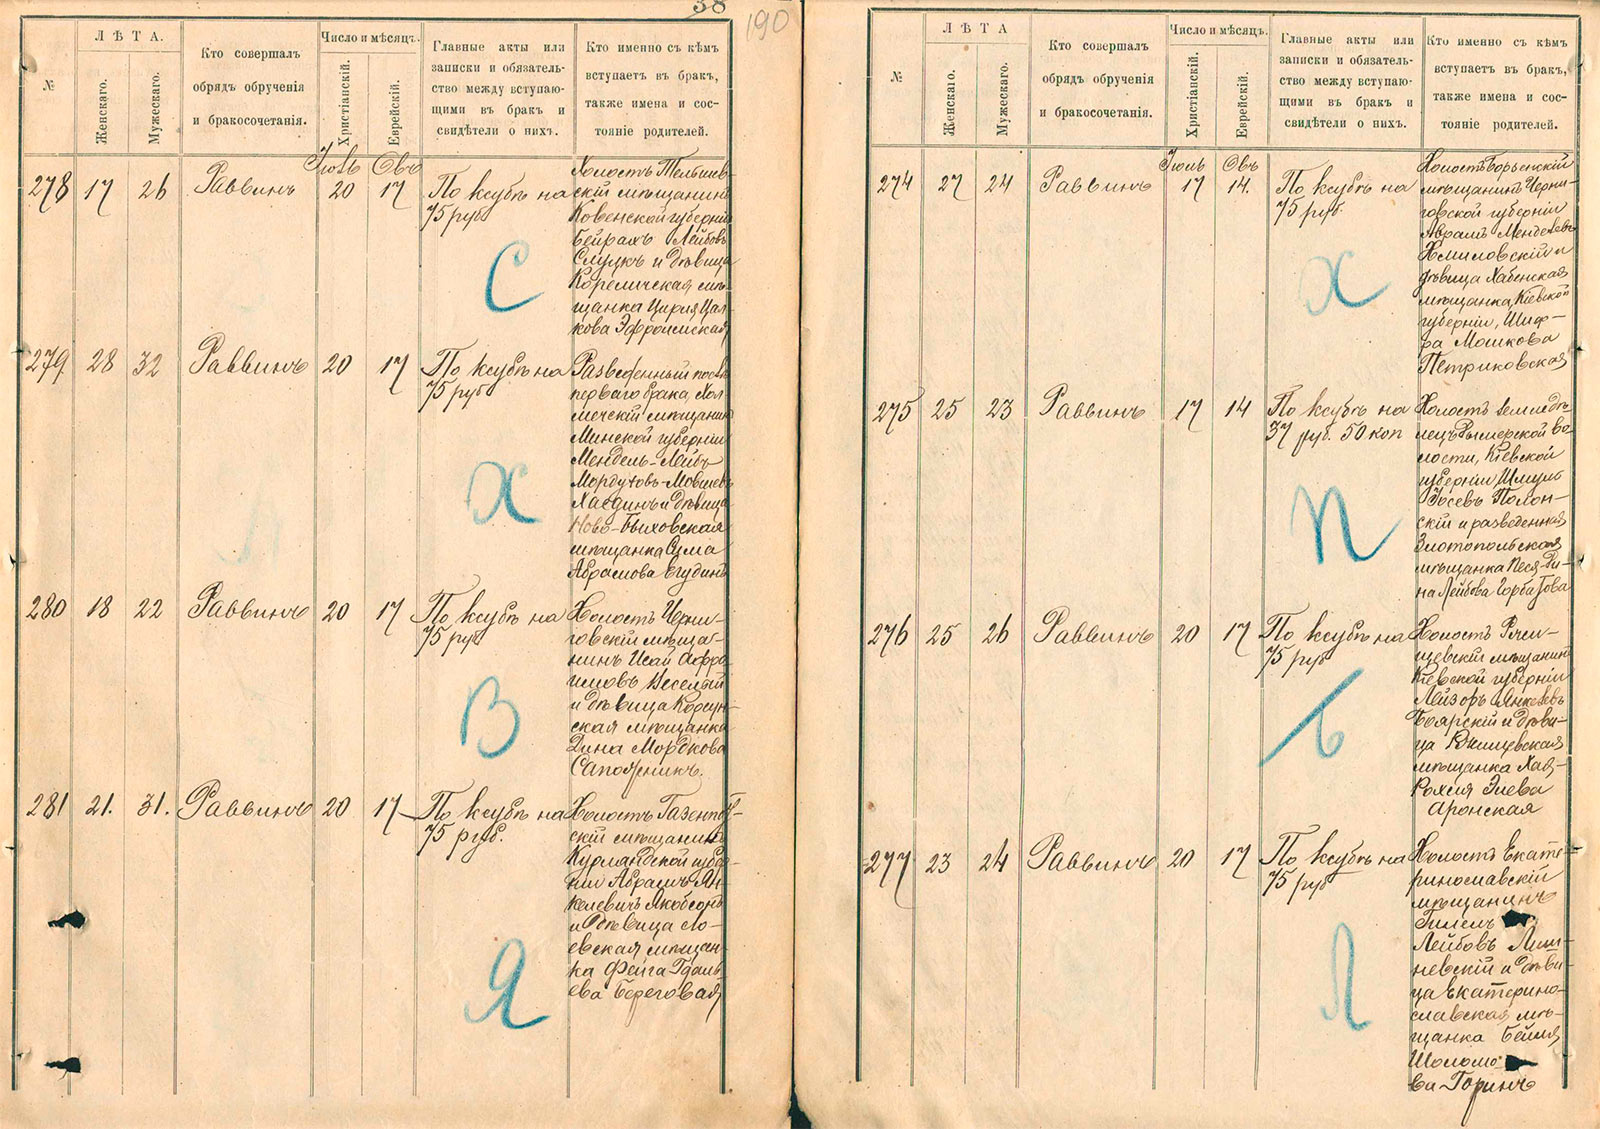 38
190
№
ЛѢТА.
Женскаго.
Мужескаго.
Кто совершалъ
обрядъ обрученія
и бракосочетанія.
Число и мѣсяцъ.
Христіанскій.
Еврейскій.
Главные акты или
записки и обязатель-
ство между вступаю-
щими въ бракъ и
свидѣтели о нихъ.
Кто именно съ кѣмъ
вступаетъ въ бракъ,
также имена и сос-
тояніе родителей.
278 17 26 Раввинъ
Іюль 20
Овъ 17
По ксубѣ на
75 руб
С
Холостъ Тельшев-
скій мѣщанинъ
Ковенской губерніи
Бейрахъ Лейбовъ
Слуцкъ и дѣвица
Кореличская мѣ-
щанка Цирля Цал-
кова Эфроимская
279 28 32 Раввинъ 20 17
По ксубѣ на
75 руб
Х
Разведенный послѣ
перваго брака, Хол
мечскій мѣщанинъ
Минской губерніи
Мендель-Лейбъ
Мордуховъ-Мовшевъ
Хаединъ и дѣвица
Ново-Быховская
мѣщанка Сума
Абрамова Егудинъ
280 18 22 Раввинъ 20 17
По ксубѣ на
75 руб
В
Холостъ Черни-
говскій мѣща-
нинъ Исай Афро-
имовъ Веселый
и дѣвица Корсун-
ская мѣщанка
Дина Мордкова
Сапожникъ.
281 21. 31. Раввинъ 20 17
По ксубѣ на
75 руб.
Я
Холостъ Газенпот-
скій мѣщанинъ
Курляндской губер-
ніи Абрамъ Ян-
келевичъ Якобсонъ
и дѣвица Ло-
евская мѣщан-
ка Фейга Гдаль-
ева Береговая
№
ЛѢТА
Женскаго.
Мужескаго.
Кто совершалъ
обрядъ обрученія
и бракосочетанія.
Число и мѣсяцъ.
Христіанскій.
Еврейскій.
Главные акты или
записки и обязатель-
ство между вступаю-
щими въ бракъ и
свидѣтели о нихъ.
Кто именно съ кѣмъ
вступаетъ въ бракъ,
также имена и сос-
тояніе родителей.
274 27 24 Раввинъ
Іюль 17
Овъ 14.
По ксубѣ на
75 руб.
Х
Холостъ Борзенскій
мѣщанинъ Черни-
говской губерніи
Аврамъ Менделевъ
Хмиловскій и
дѣвица Хабенская
мѣщанка, Кіевской
губерніи, Шиф-
ра Мошкова
Петриковская
275 25 23 Раввинъ 17 14
По ксубѣ на
37 руб. 50 коп
П
Холостъ землед̣ѣ-
лецъ Рымерской во-
лости, Кіевской
губерніи Шмуль
Іосевъ Полон-
скій и разведенная
Златопольская
мѣщанка Песя-Ди-
на Лейбова Горбатова
276 25 26 Раввинъ 20 17
По ксубѣ на
75 руб
Б
Холостъ Ржи-
щевскій мѣщанинъ
Кіевской губерніи
Лейзоръ Янкелевъ
Боярскій и дѣви-
ца Ржищевская
мѣщанка Хая-
Рохля Элева
Аронская
277 23 24 Раввинъ 20 17
По ксубѣ на
75 руб
Л
Холостъ Екате-
ринославскій
мѣщанинъ
Гилель
Лейбовъ Лиш-
невскій и дѣви-
ца Екатерино-
славская мѣ-
щанка Бейля
Шоломо-
ва Горинъ